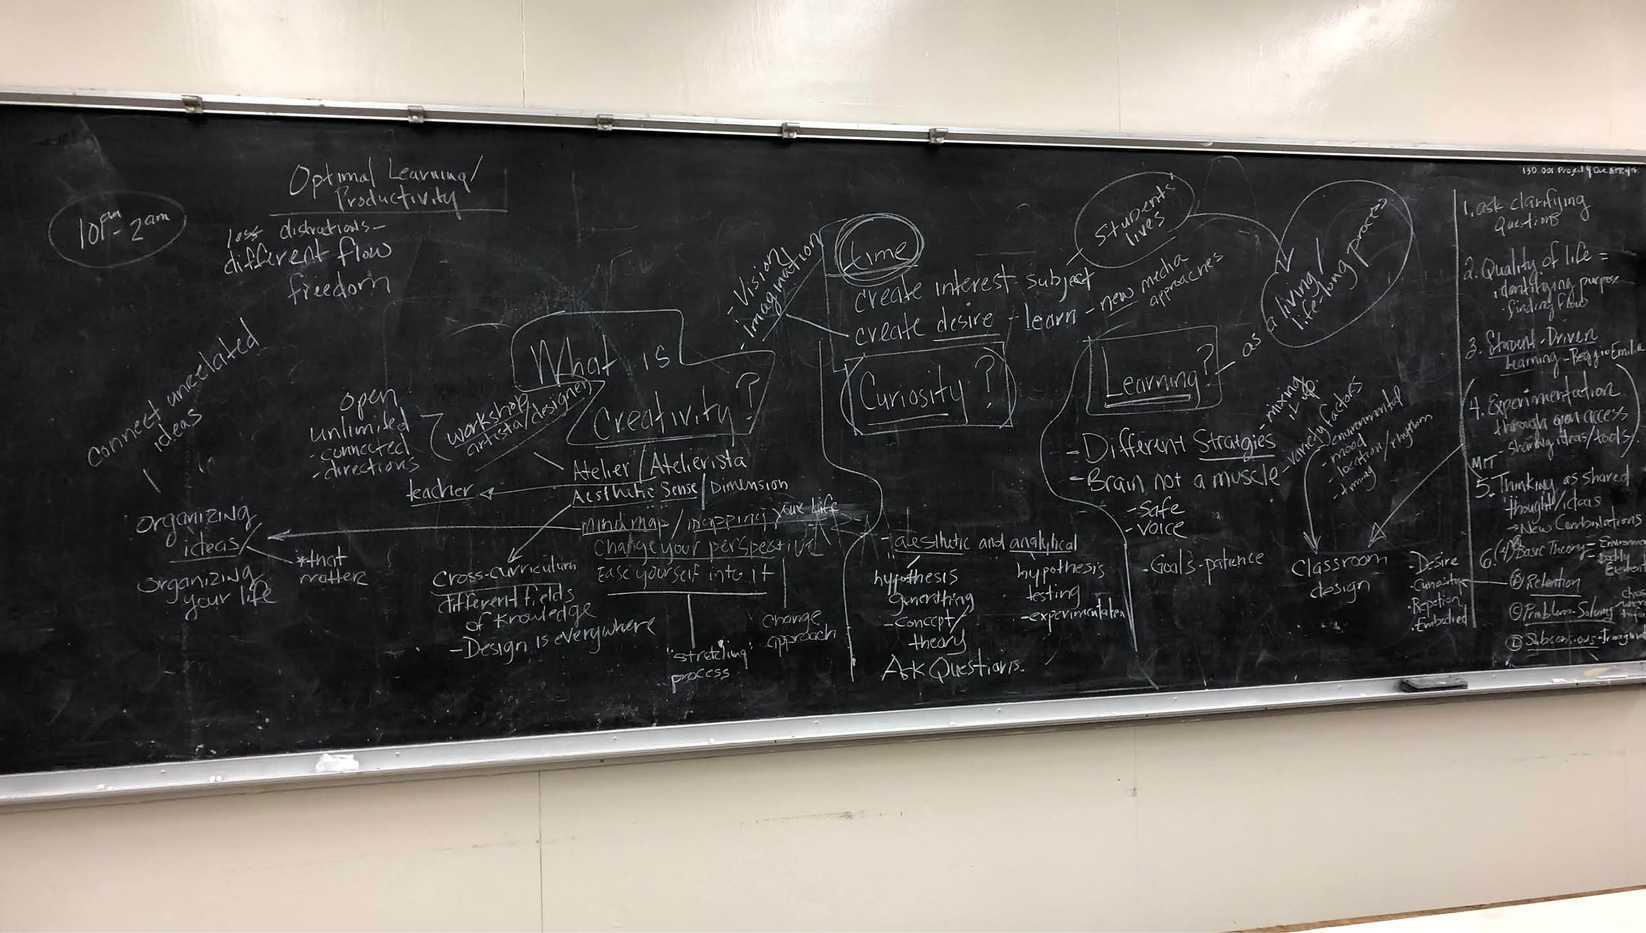 10pm - 2am
Optimal Learning/
Productivity
less distractions -
different flow
freedom
connect unrelated
ideas
organizing
ideas/
organizing
your life
*that
matter
open
unlimited
- connected
- directions
workshop
artists/designer
teacher
- Vision
- imagination
What is
Creativity?
Atelier/Atelierista
Aesthetic Sense/Dimension
mindmap/mapping your life
Change your perspective
Ease yourself into it
"stretching"
process
change
approach
Cross-curriculum
different fields
of knowledge
- Design is everywhere
time
create interest - subject
create desire - learn - new media
approaches
Curiosity?
- aesthetic and analytical
hypothesis
generating
- concept/
theory
hypothesis
testing
- experimentation
Ask Questions.
students'
lives
Learning?
- as a living/
life-long process
- Different Strategies
- Brain not a muscle
- safe
- voice
- Goals - patience
- mixing
it up
- variety factors
- environmental
- mood
- location/rhythm
- timing
Classroom
design
- Desire
- Curiosity
- Embodied
1. ask clarifying
questions
2. Quality of life =
identifying purpose
finding flow
3. Student-Driven
Learning - Reggio Emilia
4. Experimentation
through open access
sharing ideas/tools
MIT
5. Thinking as shared
thought/ideas
→ New Combinations
6. Basic Theory -
Retention
Problem-Solving